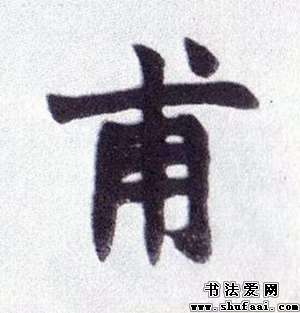 甫
书法爱网
www.shufaai.com